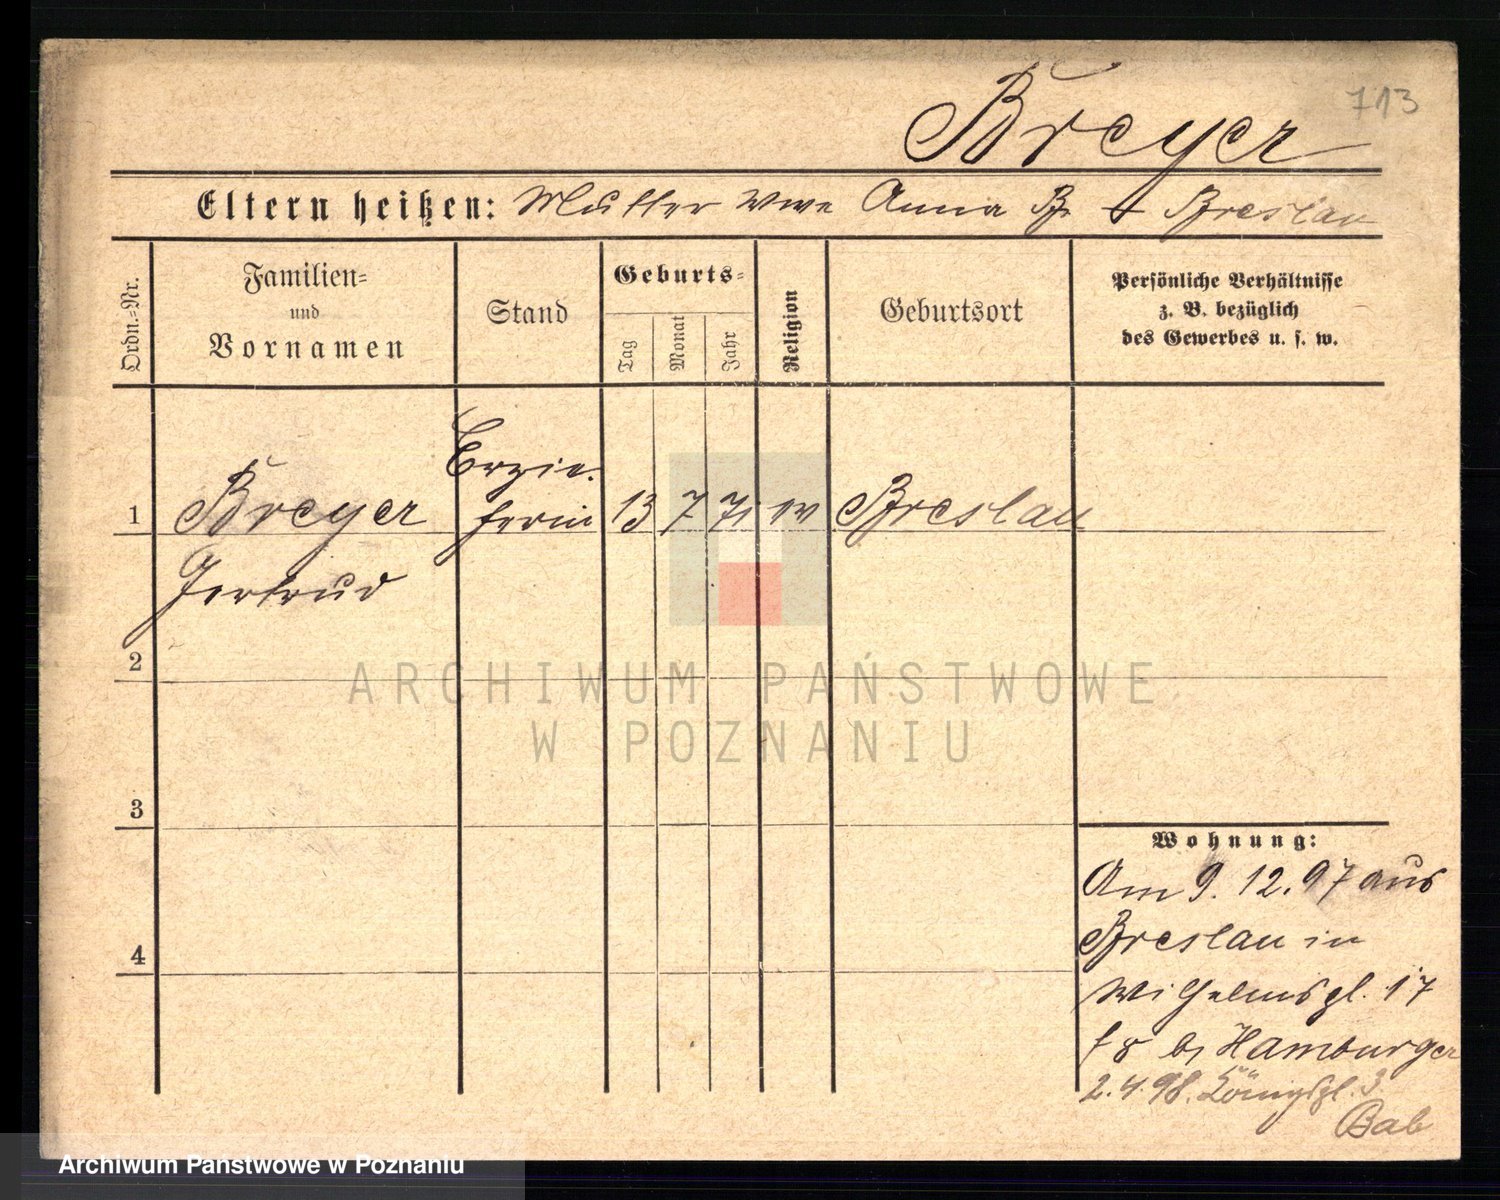 713
Breyer
Eltern heißen: Mutter Wwe Anna B. + Breslau
Ordn.-Nr.
Familien-
und
Vornamen
Stand
Geburts-
Tag
Monat
Jahr
Religion
Geburtsort
Persönliche Verhältnisse
z. B. bezüglich
des Gewerbes u. s. w.
Erzie-
1 Breyer herin 13 7 71 ev Breslau
Gertrud
2
ARCHIWUM PAŃSTWOWE
W POZNANIU
3
Wohnung:
Am 9. 12. 97 aus
Breslau in
4
Wilhelmspl. 17
b, Hamburger
2.4.98. Königspl. 3.
Bab
Archiwum Państwowe w Poznaniu